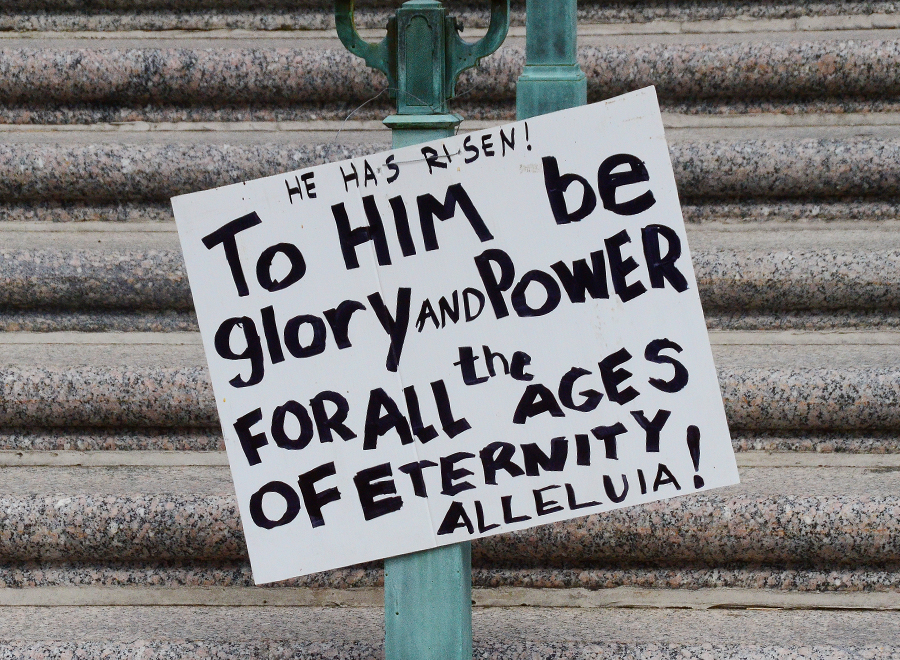 HE HAS RISEN!
To HIM be
glory AND POWER
FOR ALL the AGES
OF ETERNITY
ALLELUIA!